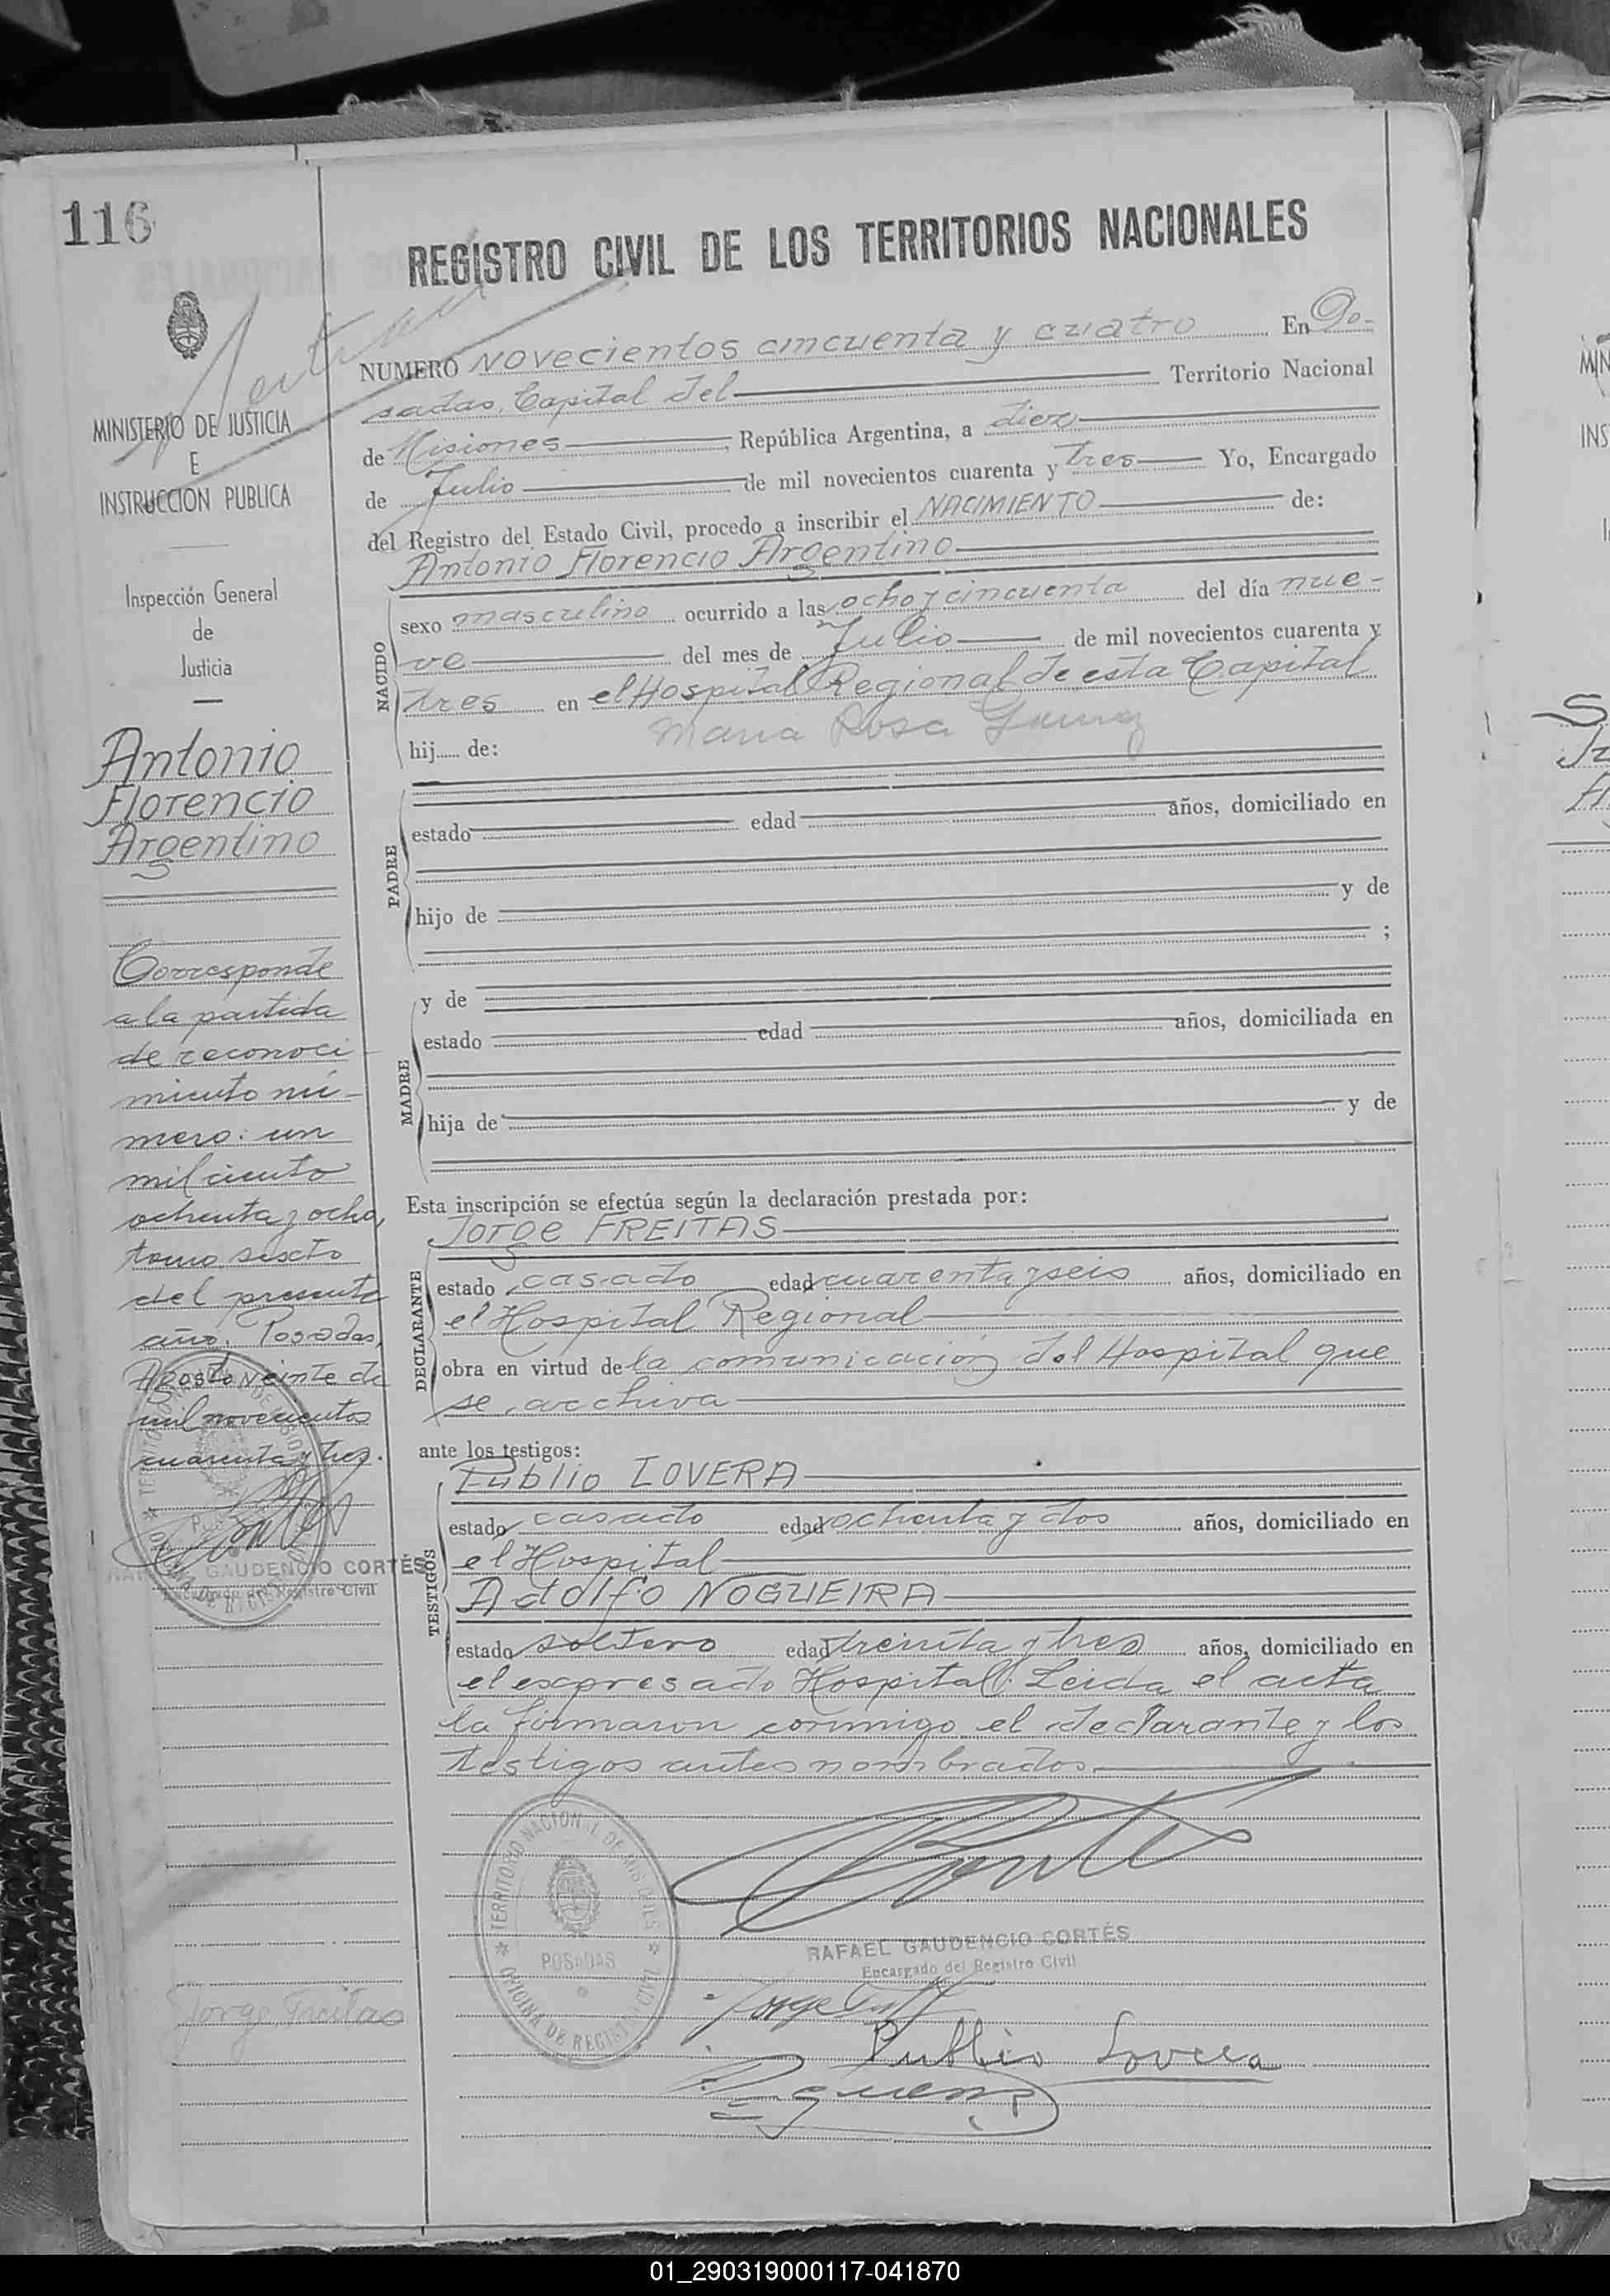 116
REGISTRO CIVIL DE LOS TERRITORIOS NACIONALES
MINISTERIO DE JUSTICIA
E
INSTRUCCION PUBLICA
Inspección General
de
Justicia
Antonio
Florencio
Argentino
Corresponde
a la partida
de reconoci-
miento nú-
mero: un
mil ciento
ochenta y ocho,
tomo sexto
del presente
año. Posadas,
Agosto veinte de
mil novecientos
cuarenta y tres.
GAUDENCIO CORTÉS
Encargado del Registro Civil
Jorge Freitas
NUMERO Novecientos cincuenta y cuatro En Po-
sadas, Capital del Territorio Nacional
de Misiones, República Argentina, a diez
de Julio de mil novecientos cuarenta y tres Yo, Encargado
del Registro del Estado Civil, procedo a inscribir el NACIMIENTO de:
Antonio Florencio Argentino
NACIDO
sexo masculino ocurrido a las ocho y cincuenta del día nue-
ve del mes de Julio de mil novecientos cuarenta y
tres en el Hospital Regional de esta Capital
hij..... de: Maria Rosa
PADRE
estado edad años, domiciliado en
hijo de y de
;
MADRE
y de
estado edad años, domiciliada en
hija de y de
Esta inscripción se efectúa según la declaración prestada por:
Jorge FREITAS
DECLARANTE
estado casado edad cuarenta y seis años, domiciliado en
el Hospital Regional
obra en virtud de la comunicación del Hospital que
se archiva
ante los testigos:
Publio LOVERA
TESTIGOS
estado casado edad ochenta y dos años, domiciliado en
el Hospital
Adolfo NOGUEIRA
estado soltero edad treinta y tres años, domiciliado en
el expresado Hospital. Leida el acta
la firmaron conmigo el declarante y los
testigos antes nombrados.
TERRITORIO NACIONAL DE MISIONES
POSADAS
OFICINA DE REGISTRO CIVIL
RAFAEL GAUDENCIO CORTÉS
Encargado del Registro Civil
Publio Lovera
01_290319000117-041870